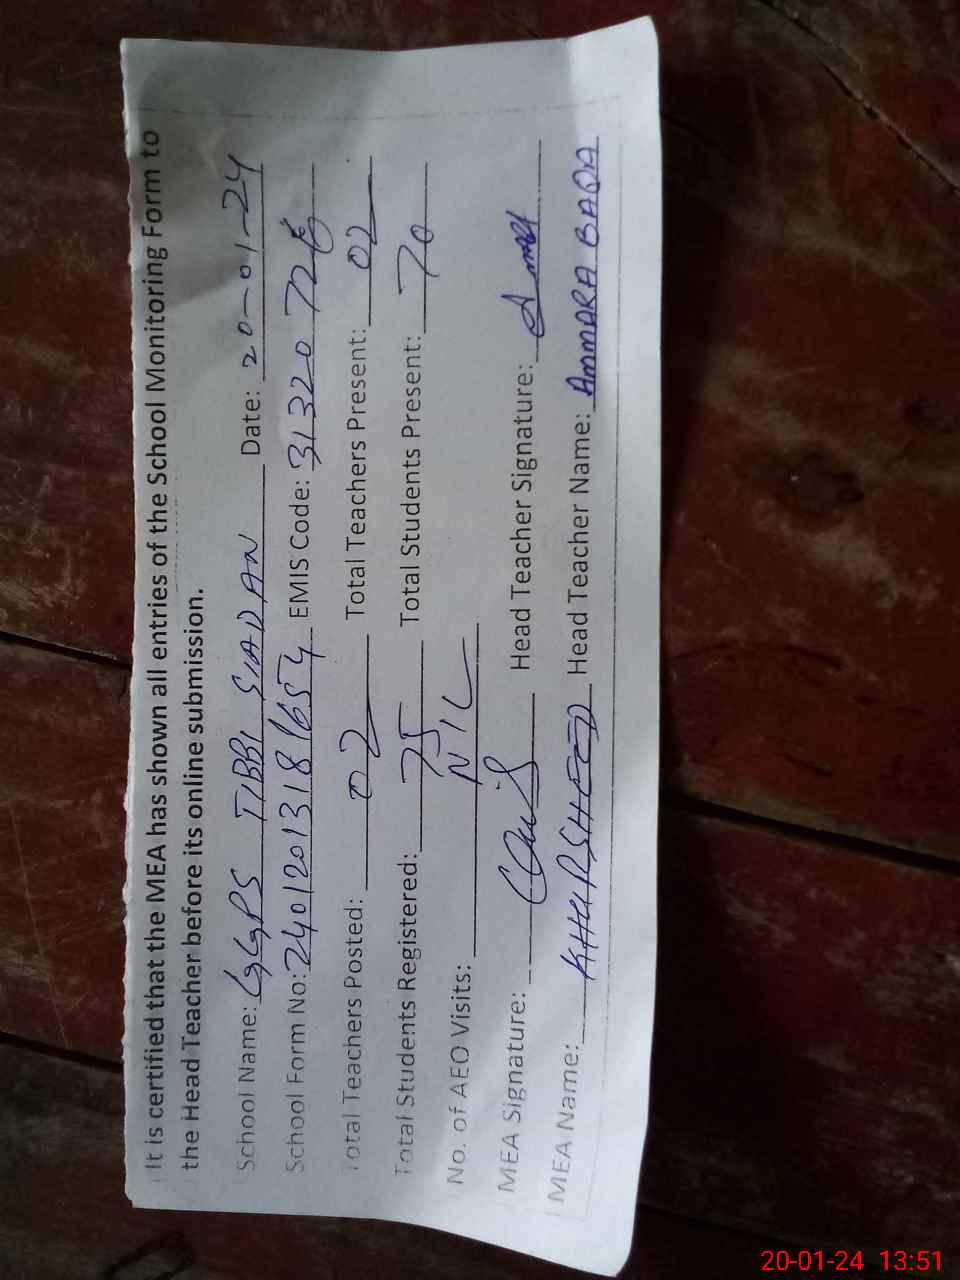 It is certified that the MEA has shown all entries of the School Monitoring Form to
the Head Teacher before its online submission.
School Name: GGPS TIBBI SIADAN Date: 20-01-24
School Form No: 24012013181654 EMIS Code: 31320726
Total Teachers Posted: 02 Total Teachers Present: 02
Total Students Registered: 75 Total Students Present: 70
No. of AEO Visits: NIL
MEA Signature: Head Teacher Signature:
MEA Name: KHURSHEED Head Teacher Name: AMMARA BAQA
20-01-24 13:51